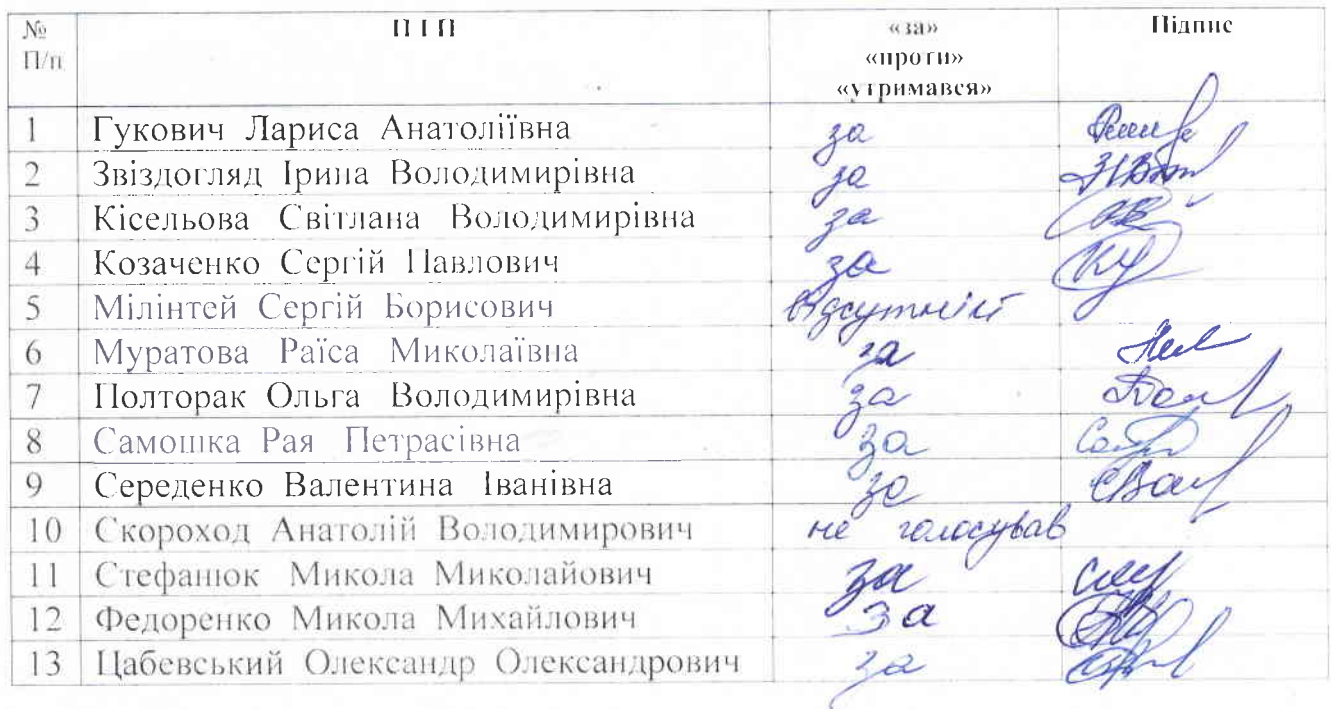 № П/п ПІП «за» «проти» «утримався» Підпис
1 Гукович Лариса Анатоліївна за
2 Звіздогляд Ірина Володимирівна за
3 Кісельова Світлана Володимирівна за
4 Козаченко Сергій Павлович за
5 Мілінтей Сергій Борисович відсутній
6 Муратова Раїса Миколаївна за
7 Полторак Ольга Володимирівна за
8 Самошка Рая Петрасівна за
9 Середенко Валентина Іванівна за
10 Скороход Анатолій Володимирович не голосував
11 Стефанюк Микола Миколайович за
12 Федоренко Микола Михайлович за
13 Цабевський Олександр Олександрович за